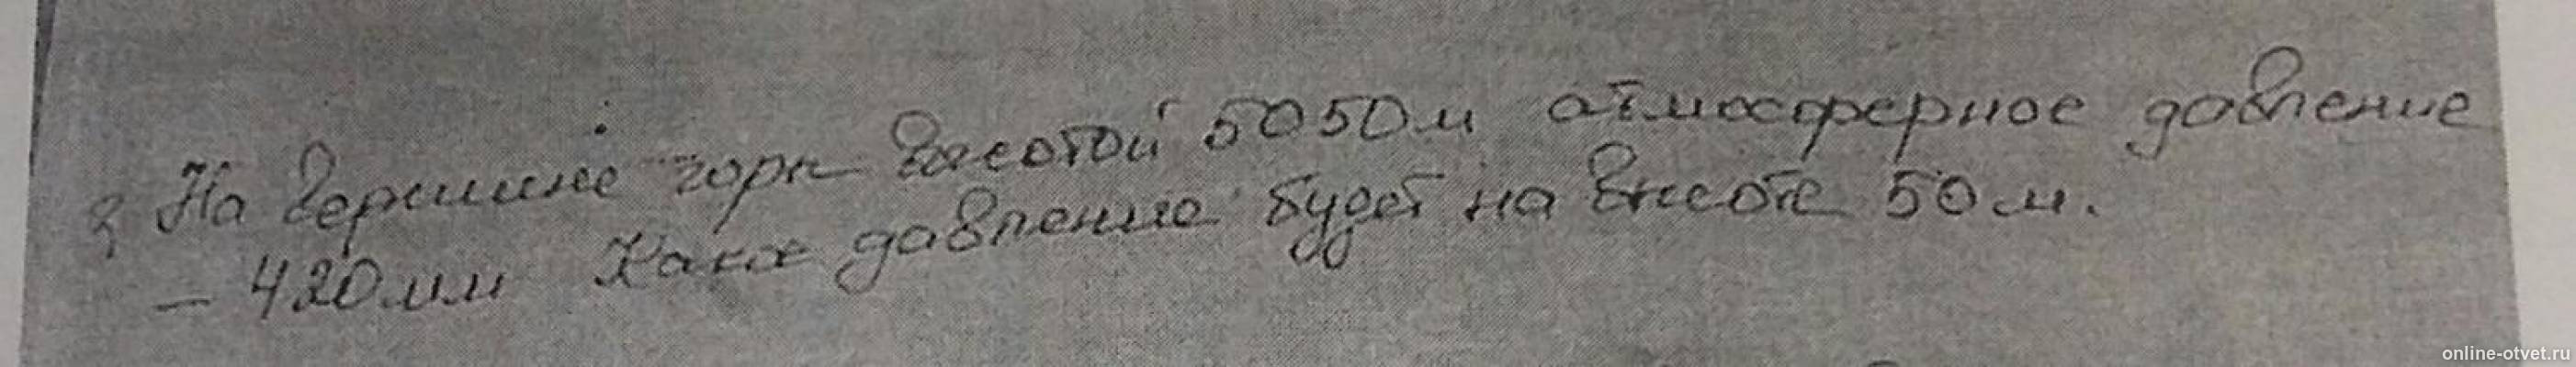 3 На вершине горы высотой 5050м атмосферное давление
– 420мм Какое давление будет на высоте 50м.
online-otvet.ru